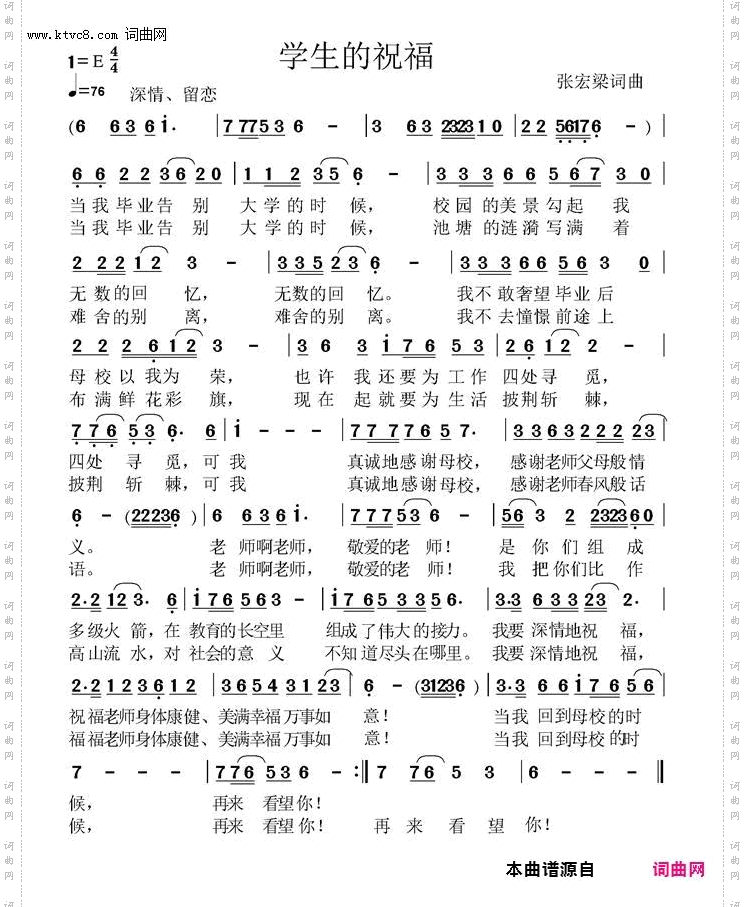 www.ktvc8.com 词曲网
学生的祝福
1=E 4/4
♩=76
深情、留恋
张宏梁词曲
(6 63 6i· | 7 77536 - | 3 63 232310 | 22 56176 - )
6 6 22 3620 | 11 2 35 6 - | 333 665 67 30
当我毕业告别 大学的时候， 校园的美景勾起 我
当我毕业告别 大学的时候， 池塘的涟漪写满 着
2 2212 3 - | 335236 - | 333665 63 0
无数的回 忆， 无数的回忆。 我不敢奢望毕业后
难舍的别 离， 难舍的别离。 我不去憧憬前途上
2 2 22612 3 - | 36 3 i76 53 | 26 12 2 -
母校以我为 荣， 也许 我还要为工作 四处寻 觅，
布满鲜花彩 旗， 现在 起就要为生活 披荆斩 棘，
776 53 6· 6 | i - - - | 77 77765 7· | 3363222 23
四处 寻 觅，可我 真诚地感谢母校， 感谢老师父母般情
披荆 斩 棘，可我 真诚地感谢母校， 感谢老师春风般话
6 - (22236) | 6 636i· | 777536 - | 563 2 232360
义。 老 师啊老师， 敬爱的老 师！ 是你们组成
语。 老 师啊老师， 敬爱的老 师！ 我把你们比作
2·2 123· 6 | i76 563 3 | i765 3356· | 3·3 633 23 2·
多级火 箭，在 教育的长空里 组成了伟大的接力。 我要深情地祝 福，
高山流 水，对 社会的意 义 不知道尽头在哪里。 我要深情地祝 福，
2·2123612 | 3654 3123 | 6 - (31236) | 3·3 66i76 56
祝福老师身体康健、美满幸福万事如 意！ 当我 回到母校的时
福福老师身体康健、美满幸福万事如 意！ 当我 回到母校的时
7 - - - | 776 536 - :‖ 7 76 5 3 | 6 - - - ‖
候， 再来 看望你！
候， 再来 看望你！ 再 来 看 望 你！
本曲谱源自 词曲网